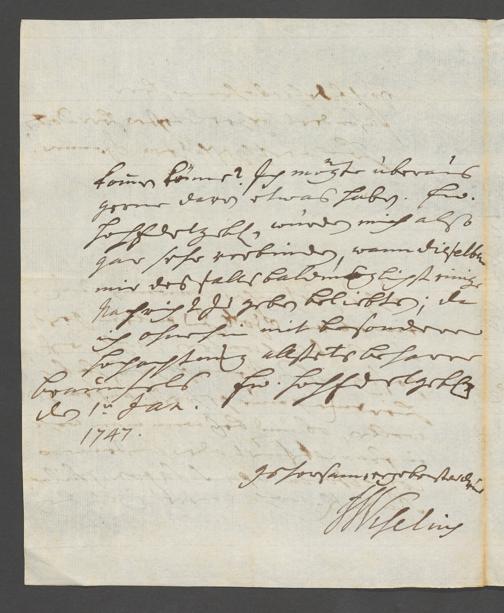 kommen könne? Ich mögte überaus
gerne davon etwas haben. Ew.
HochEdelgeb. würden mich also
gar sehr verbinden, wann dieselben
mir desfalls baldmöglichst einige
Nachricht zu geben beliebten; da
ich ohnehin mit besonderer
Hochachtung allstets beharre
Braunfels Ew. HochEdelgeb.
den 1n Jan.
1747.
gehorsamergebenster